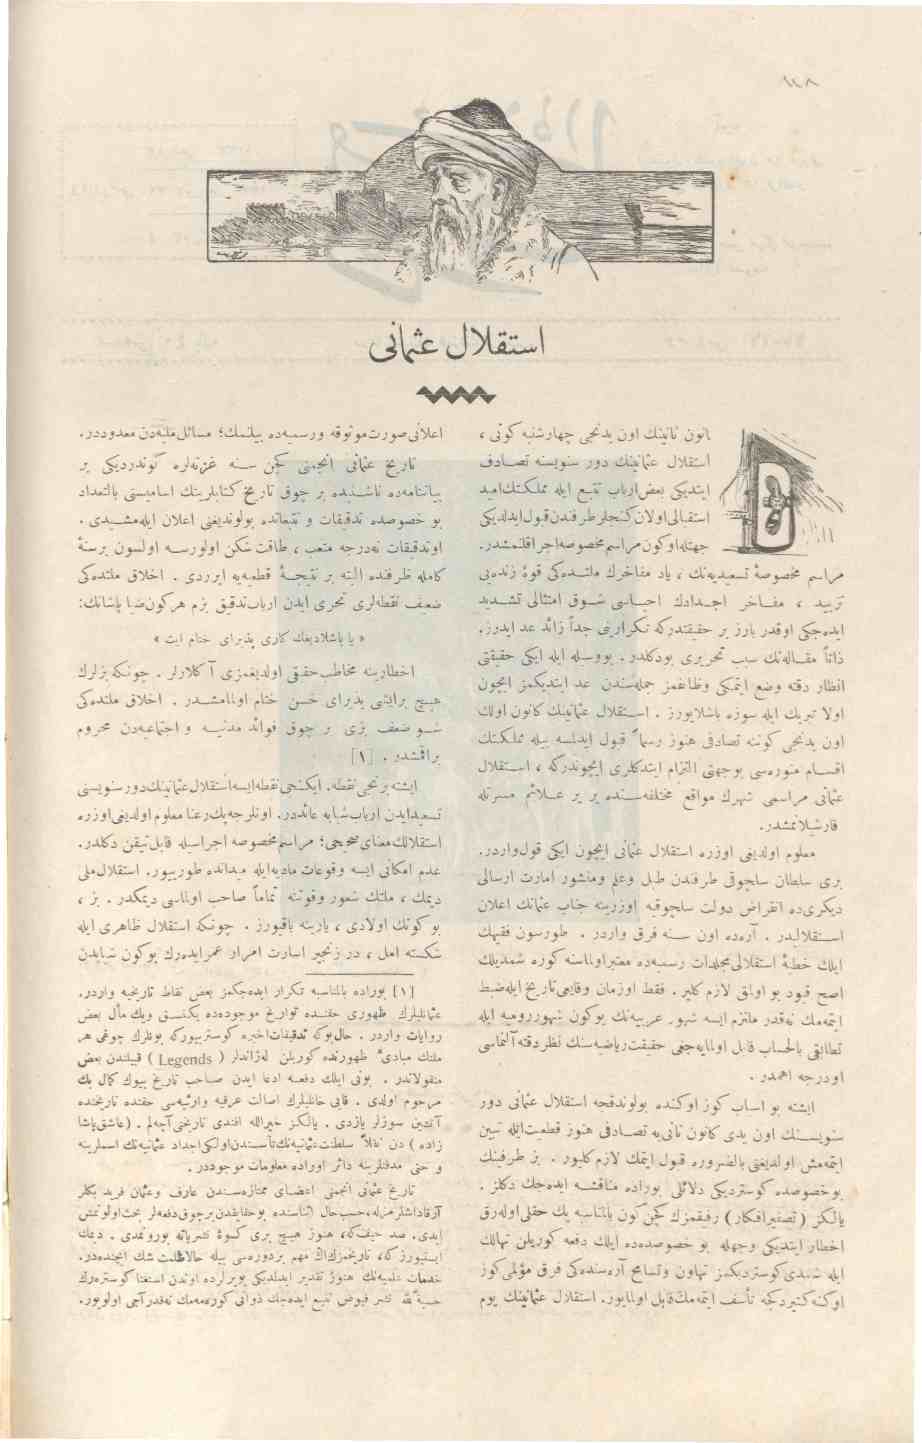 استقلال عثمانی
كانون ثانینك اون یدنجی چهارشنبه كونی ،
استقلال عثمانینك دور سنویسنه تصادف
ایتدیكی بعض ارباب تتبع ایله مملكتك امید
استقبالی اولان كنجلر طرفندن قبول ایدلدیكی
جهتله او كون مراسم مخصوصه اجرا قلنمشدر.
مراسم مخصوصهٔ تسعیدیه نك ، یاد مفاخرك ملتده كی قوهٔ زنده یی
تزیید ، مفاخر اجدادك احیاسی شوق امتثالی تشدید
ایده جكی اوقدر بارز بر حقیقتدر كه تكرارینی جداً زائد عد ایدرز.
ذاتاً مقاله نك سبب تحریری بودكلدر. بووسیله ایله ایكی حقیقتی
انظار دقته وضع ایتمكی وظائفمز جمله سندن عد ایتدیكمز ایچون
اولا تبریك ایله سوزه باشلایورز . استقلال عثمانینك كانون اولك
اون یدنجی كوننه تصادفی هنوز رسماً قبول ایدلمسه بیله مملكتك
اقسام منوره سی بوجهتی التزام ایتدكلری ایچوندر كه ، استقلال
عثمانی مراسمی شهرك مواقع مختلفه سنده بر بر علائم مسرتله
قارشیلانمشدر.
معلوم اولدیغی اوزره استقلال عثمانی ایچون ایكی قول واردر.
بری سلطان سلجوقی طرفندن طبل وعلم ومنشور امارت ارسالی
دیكری ده انقراض دولت سلجوقیه اوزرینه جناب عثمانك اعلان
استقلالیدر . آره ده اون سنه فرق واردر . طورسون فقیهك
ایلك خطبهٔ استقلالی مجلدات رسمیه ده معتبر اولماسنه كوره شمدیلك
اصح قیود بو اولمق لازم كلیر. فقط اوزمان وقایعی تاریخ ایله ضبط
ایتمه مك نه قدر ملتزم ایسه شهور عربیه نك بوكون شهور رومیه ایله
تطابقی بالحساب قابل اولمایه جغی حقیقت ریاضیه سنك نظر دقته آلنماسی
اودرجه اهمدر .
ایشته بو اسباب كوز اوكنده بولوندقجه استقلال عثمانی دور
سنویسنك اون یدی كانون ثانی یه تصادفی هنوز قطعیت ایله تبین
ایتمه مش اولدیغنی بالضروره قبول ایتمك لازم كلیور. بز طرفینك
بوخصوصده كوستردیكی دلائلی بوراده مناقشه ایده جك دكلز .
یالكز ( تصفیر افكار ) رفیقمزك كچن كون بالمناسبه پك حقلی اوله رق
اخطار ایتدیكی وجهله بو خصوصده ده ایلك دفعه كوریلن تهالك
ایله شمدی كوستردیكمز تهاون وتسامح آره سنده كی فرق مؤلمی كوز
اوكنه كتیردكجه تأسف ایتمه مك قابل اولمایور. استقلال عثمانینك یوم
اعلانی صورت موثوقه ورسمیه ده بیلنمك؛ مسائل ملیه دن معدوددر.
تاریخ عثمانی انجمنی كچن سنه غزته لره كوندردیكی بر
بیاننامه ده ناشنیده بر چوق تاریخ كتابلرینك اسامیسنی بالتعداد
بو خصوصده تدقیقات و تتبعاتده بولوندیغنی اعلان ایله مشیدی .
اوتدقیقات نه درجه متعب ، طاقت شكن اولورسه اولسون برسنهٔ
كامله ظرفنده البته بر نتیجهٔ قطعیه یه ایرردی . اخلاق ملتده كی
ضعف نقطه لری تحری ایدن ارباب تدقیق بزم هر كون ضیا پاشانك:
« یا باشلادیغك كاری پذیرای ختام ایت »
اخطارینه مخاطب حقیقی اولدیغمزی آكلارلر . چونكه بزلرك
هیچ برایشی پذیرای حسن ختام اولمامشدر . اخلاق ملتده كی
شو ضعف بزی بر چوق فوائد مدنیه و اجتماعیه دن محروم
براقمشدر . [۱]
ایشته برنجی نقطه. ایكنجی نقطه ایسه استقلال عثمانینك دور سنویسنی
تسعید ایدن ارباب شبابه عائددر. اونلرجه پك رعنا معلوم اولدیغی اوزره
استقلالك معنای صحیحی؛ مراسم مخصوصه اجراسیله قابل تیقن دكلدر.
عدم امكانی ایسه وقوعات مادیه ایله میدانده طوریيور. استقلال ملی
دیمك ، ملتك شعور وقوتنه تماماً صاحب اولماسی دیمكدر . بز ،
بو كونك اولادی ، یارینه باقیورز . چونكه استقلال ظاهری ایله
شكسته امل ، در زنجیر اسارت امرار عمر ایده رك بوكون شبابدن
[۱] بوراده بالمناسبه تكرار ایده جكمز بعض نقاط تاریخیه واردر.
عثمانلیلرك ظهوری حقنده تواریخ موجوده ده یكنسق ویك مآل بعض
روایات واردر . حال بو كه تدقیقات اخیره كوستریيور كه بونلرك چوغی هر
ملتك مبادیٔ ظهورنده كوریلن له ژاندلر ( Legends ) قبیلندن بعض
منقولاتدر . بونی ایلك دفعه ادعا ایدن صاحب تاریخ بیوك كمال بك
مرحوم اولدی . قایی خانلیلرك اصالت عرقیه وارثیه سی حقنده تاریخنده
آتشین سوزلر یازدی . یالكز خیرالله افندی تاریخنی آچه لم . ( عاشق پاشا
زاده ) دن نقلاً سلطنت عثمانیه نك تأسسندن اولكی اجداد عثمانیه نك اسملرینه
و حتی مدفنلرینه دائر اوراده معلومات موجوددر .
تاریخ عثمانی انجمنی اعضای ممتازه سندن عارف وعثمان فرید بكلر
آرقاداشلرمزله، حسب حال اثناسنده بوحقایقدن برچوق دفعه لر بحث اولونمش
ایدی. صد حیف كه، هنوز هیچ بری كسوهٔ نشریاته بورونمدی . دیمك
ایستیورز كه، تاریخمزك اڭ مهم بردوره سی بیله حالا ظلمت شك ایچنده در.
خدمات علمیه نك هنوز تقدیر ایدلدیكی بویرلرده اوندن استغنا كوستره رك
حسبةً لله نشر فیوض تتبع ایده جك ذواتی كوره مه مك نه قدر آجی اولیور.